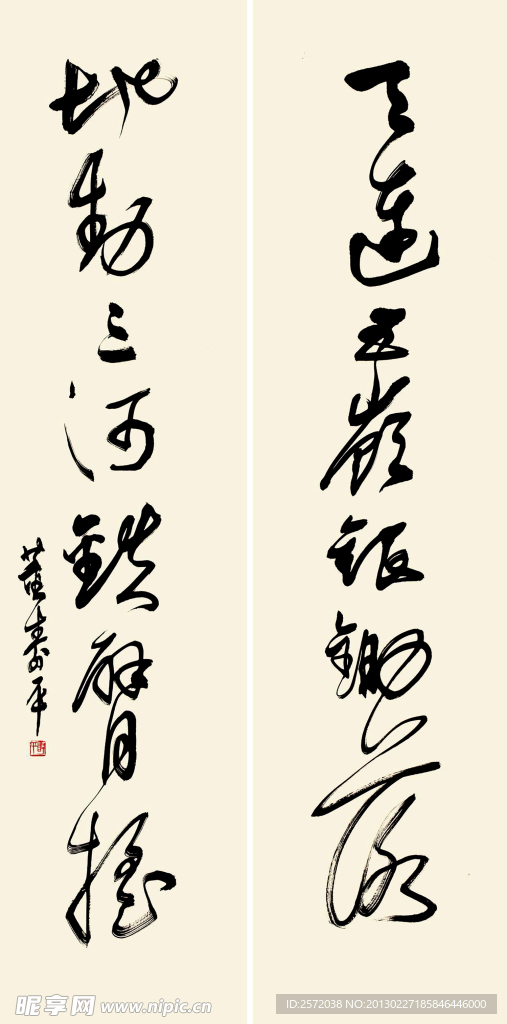 天连五岭银锄落
地动三河铁臂摇
董寿平
昵享网 www.nipic.cn
ID:2572038 NO:20130227185846446000